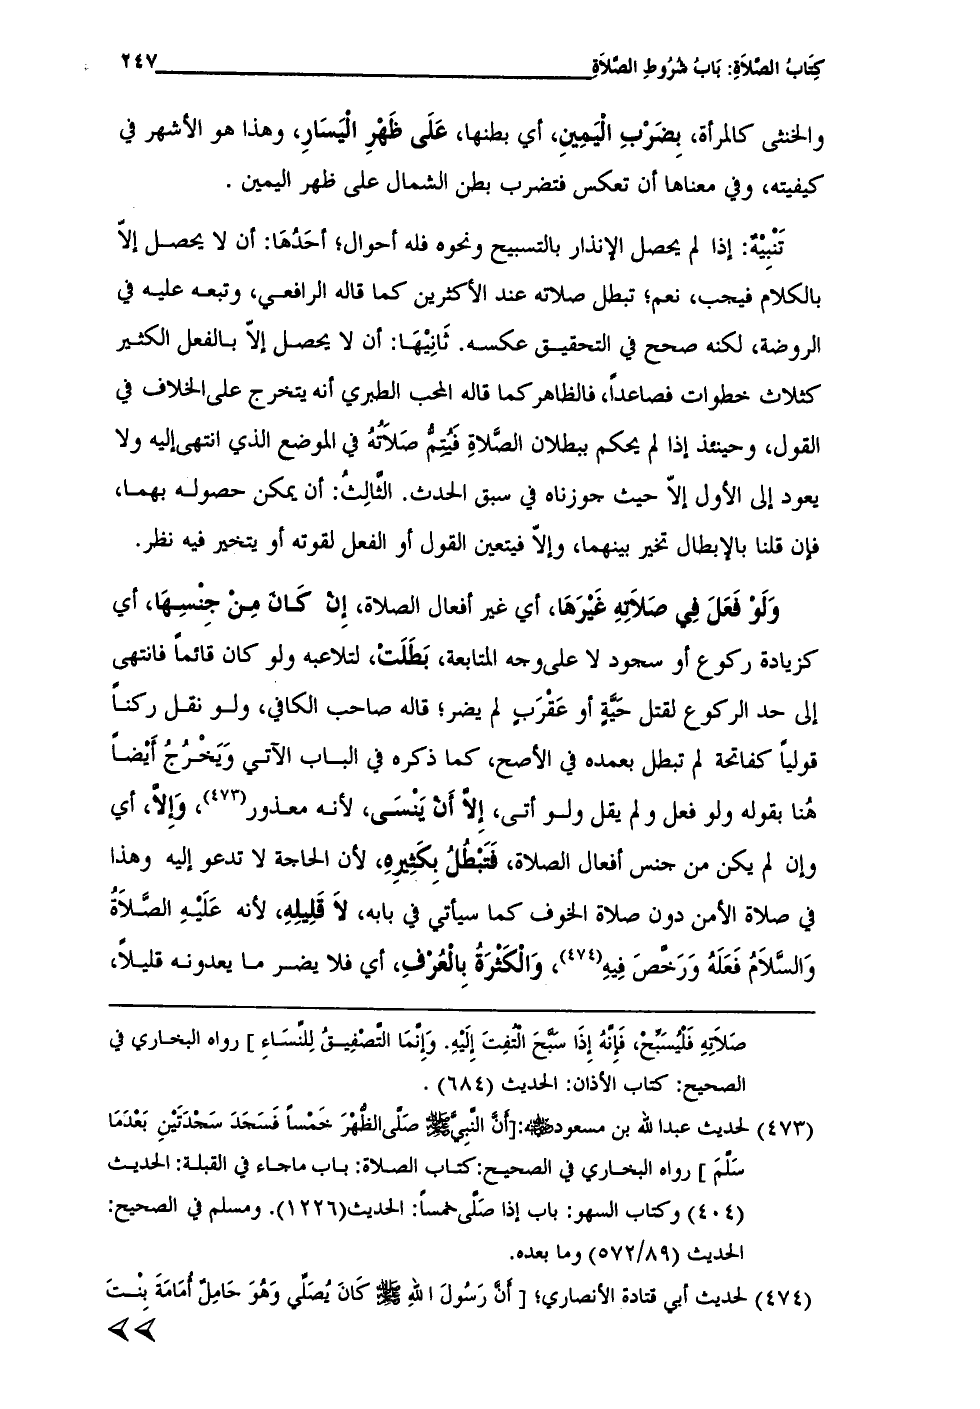 كِتَابُ الصَّلاَةِ: بَابُ شُرُوطِ الصَّلاَةِ ٢٤٧
والخنثى كالمرأة، بِضَرْبِ الْيَمِينِ، أي بطنها، عَلَى ظَهْرِ الْيَسَارِ، وهذا هو الأشهر في
كيفيته، وفي معناها أن تعكس فتضرب بطن الشمال على ظهر اليمين .
تَنْبِيْهٌ: إذا لم يحصل الإنذار بالتسبيح ونحوه فله أحوال؛ أحَدُهَا: أن لا يحصل إلاّ
بالكلام فيجب، نعم؛ تبطل صلاته عند الأكثرين كما قاله الرافعي، وتبعه عليه في
الروضة، لكنه صحح في التحقيق عكسه. ثَانِيْهَا: أن لا يحصل إلاّ بالفعل الكثير
كثلاث خطوات فصاعداً، فالظاهر كما قاله المحب الطبري أنه يتخرج على الخلاف في
القول، وحينئذ إذا لم يحكم ببطلان الصَّلاةِ فَيُتِمُّ صَلاَتَهُ في الموضع الذي انتهى إليه ولا
يعود إلى الأول إلاّ حيث جوزناه في سبق الحدث. الثَّالِثُ: أن يمكن حصوله بهما،
فإن قلنا بالإبطال تخير بينهما، وإلاّ فيتعين القول أو الفعل لقوته أو يتخير فيه نظر.
وَلَوْ فَعَلَ فِي صَلاَتِهِ غَيْرَهَا، أي غير أفعال الصلاة، إِنْ كَانَ مِنْ جِنْسِهَا، أي
كزيادة ركوع أو سجود لا على وجه المتابعة، بَطَلَتْ، لتلاعبه ولو كان قائماً فانتهى
إلى حد الركوع لقتل حَيَّةٍ أو عَقْرَبٍ لم يضر؛ قاله صاحب الكافي، ولو نقل ركناً
قولياً كفاتحة لم تبطل بعمده في الأصح، كما ذكره في الباب الآتي وَيَخْرُجُ أَيْضاً
هُنا بقوله ولو فعل ولم يقل ولو أتى، إِلاَّ أَنْ يَنْسَى، لأنه معذور(٤٧٣)، وَإِلاَّ، أي
وإن لم يكن من جنس أفعال الصلاة، فَتَبْطُلُ بِكَثِيرِهِ، لأن الحاجة لا تدعو إليه وهذا
في صلاة الأمن دون صلاة الخوف كما سيأتي في بابه، لاَ قَلِيلِهِ، لأنه عَلَيْهِ الصَّلاَةُ
وَالسَّلاَمُ فَعَلَهُ وَرَخَّصَ فِيهِ(٤٧٤)، وَالْكَثْرَةُ بِالْعُرْفِ، أي فلا يضر ما يعدونه قليلاً،
صَلاَتِهِ فَلْيُسَبِّحْ، فَإِنَّهُ إِذَا سَبَّحَ الْتُفِتَ إِلَيْهِ. وَإِنَّمَا التَّصْفِيقُ لِلنِّسَاءِ ] رواه البخاري في
الصحيح: كتاب الأذان: الحديث (٦٨٤) .
(٤٧٣) لحديث عبدا لله بن مسعودﷺ:[أَنَّ النَّبِيَّﷺ صَلَّى الظُّهْرَ خَمْساً فَسَجَدَ سَجْدَتَيْنِ بَعْدَمَا
سَلَّمَ ] رواه البخاري في الصحيح:كتاب الصلاة: باب ماجاء في القبلة: الحديث
(٤٠٤) وكتاب السهو: باب إذا صَلَّى خمساً: الحديث(١٢٢٦). ومسلم في الصحيح:
الحديث (٥٧٢/٨٩) وما بعده.
(٤٧٤) لحديث أبي قتادة الأنصاري؛ [ أَنَّ رَسُولَ ا للهِ ﷺ كَانَ يُصَلِّي وَهُوَ حَامِلٌ أُمَامَةَ بِنْتَ